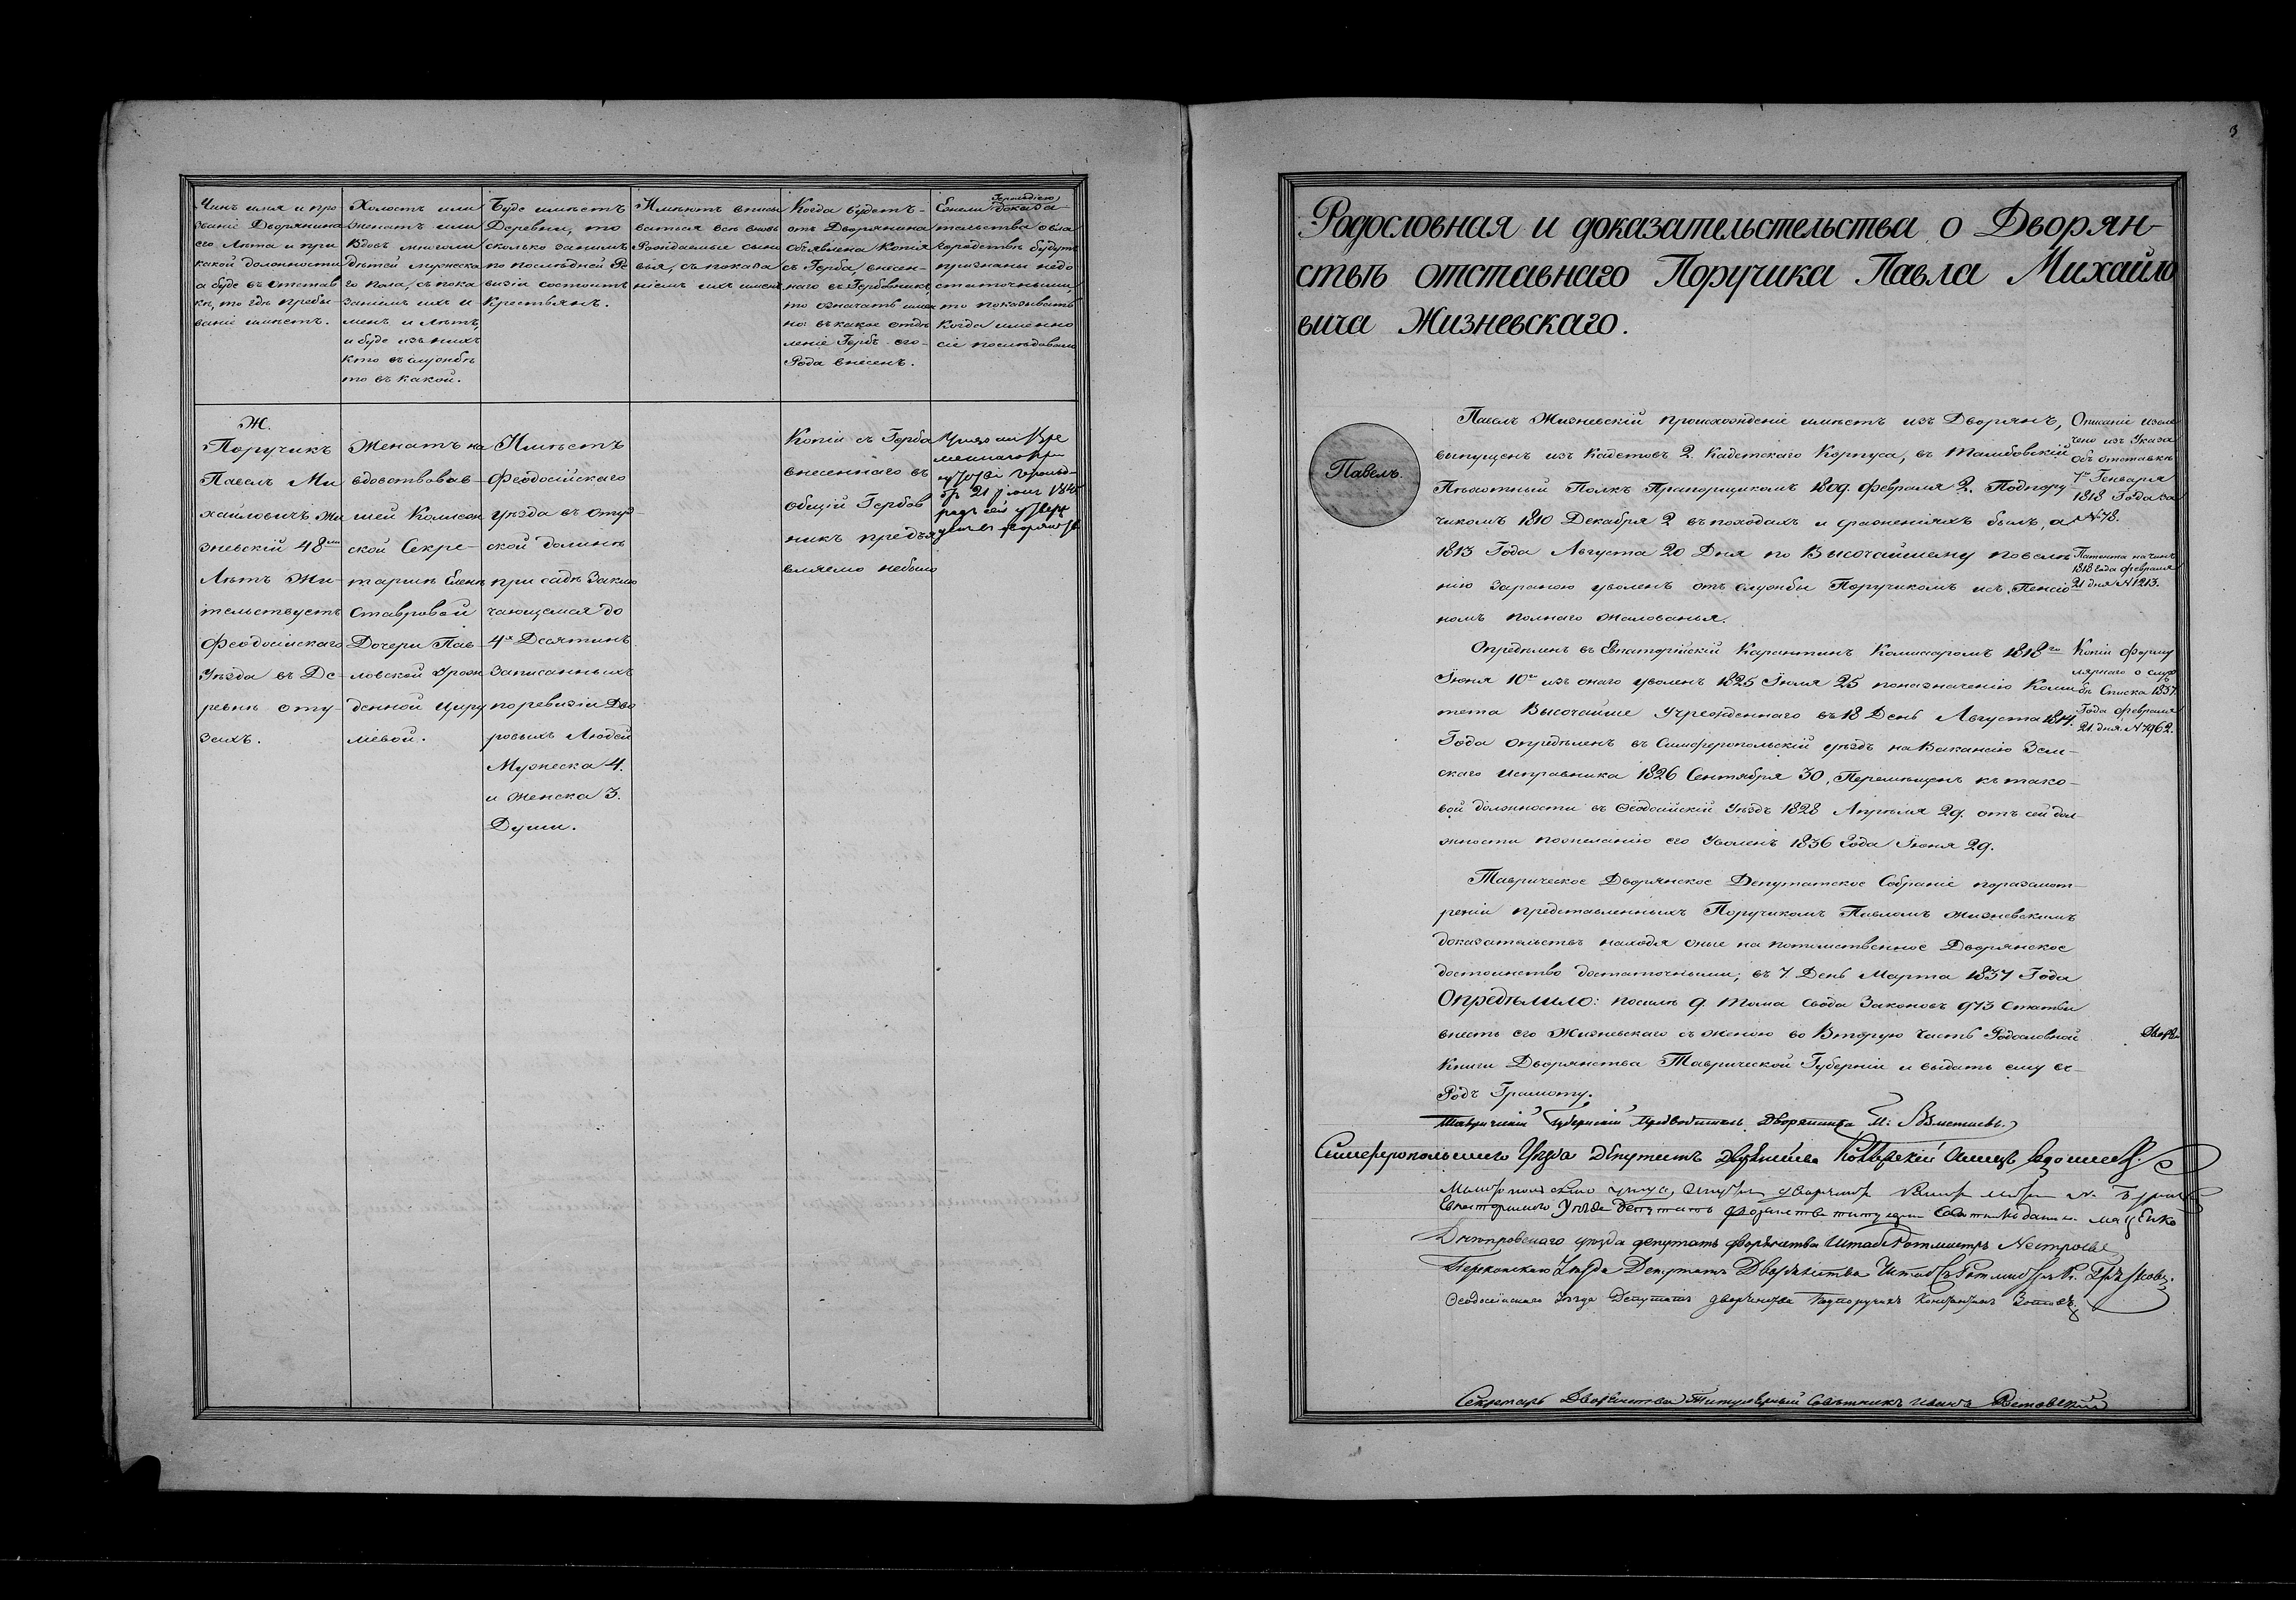 Чинъ имя и про-
званіе Дворянина
его Лѣта и при
какой должности
а буде въ отстав
кѣ, то гдѣ пребы
ваніе имѣетъ.
Холостъ или
женатъ или
вдовъ многоли
дѣтей мужеска
го пола, съ пока
заніемъ ихъ и
менъ и лѣтъ,
и буде изъ нихъ
кто въ службѣ
то въ какой.
Буде имѣетъ
Деревни, то
сколько занимъ
по послѣдней Ре
визіи состоитъ
Крестьянъ.
Имѣютъ вписы
ваться всѣ вновь
Рождаемые сыно
вья, съ показа
ніемъ ихъ именъ
Когда будетъ-
отъ Дворянина
объявлена Копія
съ Герба, внесен-
наго въ Гербовникъ
то означать имен
но: въ какое отдѣ
леніе Гербъ его-
Рода внесенъ.
Герольдіею
Ежели доказа-
тельства о бла
городствѣ будутъ
признаны недо
статочными
то показывать
когда именно
сіе послѣдовало
Ж.
Поручикъ
Павелъ Ми
хайловичъ Жи
зневскій 48ми
Лѣтъ Жи-
тельствуетъ
Феодосійскаго
Уѣзда въ Де-
ревнѣ оту-
зехъ.
Женатъ на
вдовствовав-
шей Колеж
ской Секре-
таршѣ Еленѣ
Ставровой
Дочери Пав-
ловской Урож
денной Цыру
ліевой.
Имѣетъ
Феодосійскаго
уѣзда въ отуз
ской долинѣ
при садѣ Заклю
чающемся до
4х Десятинъ
Записанныхъ
поревизіи Дво
ровыхъ Людей
Мужеска 4.
и Женска 3.
Души.
Копіи съ Герба
внесеннаго въ
общій Гербов
никъ предъя
вляемо небыло
3
Родословная и доказательстельства о Дворян-
ствѣ отставнаго Поручика Павла Михайло
вича Жизневскаго.
Павелъ.
Павелъ Жизневскій происхожденіе имѣетъ изъ Дворянъ,
выпущенъ изъ Кадетовъ 2. Кадетскаго Корпуса, въ Тамбовскій
Пѣхотный Полкъ Прапорщикомъ 1809. Февраля 2. Подпору
чикомъ 1810 Декабря 2 въ походахъ и сраженіяхъ былъ, а
1813 Года Августа 20 Дня по Высочайшему повелѣ
нію Зараною уволенъ отъ службы Поручикомъ исъ Пенсіо
номъ полнаго жалованья.
Описаніе извле
чено изъ Указа
объ отставкѣ
7го Генваря
1818 Года за
№ 78.
Патента на чинъ
1818 года февраля
21 дня № 1213.
Опредѣленъ въ Евпаторійскій Карантинъ Комисаромъ 1818го
Іюня 10го изъ онаго уволенъ 1825 Іюля 25 поназначенію Коми
тета Высочайше Учрежденнаго въ 18 День Августа 1814.
Года опредѣленъ въ Симферопольскій уѣздъ на Вакансію Зем-
скаго исправника 1826 Сентября 30, Перемѣщенъ къ тако-
вой должности въ Ѳеодосійскій Уѣздъ 1828 Апрѣля 29. отъ сей дол-
жности пожеланію его Уволенъ 1836 Года Іюня 29.
Копіи форму
лярнаго о служ
бѣ Списка 1837.
Года февраля
21. дня № 7962.
Таврическое Дворянское Депутатское Собраніе поразсмот-
реніи представленныхъ Поручикомъ Павломъ Жизневскимъ
доказательствъ находя оные на потомственное Дворянское
достоинство достаточными; въ 7. День Марта 1837 Года
Опредѣлило: посилѣ 9. Тома свода Законовъ 973 Статьи
внесть его Жизневскаго съ женою во Вторую Часть Родословной
Книги Дворянства Таврической Губерніи и выдать ему въ-
Родъ Грамоту.
Таврическій Губернскій Предводитель Дворянства
Симферопольскаго Уѣзда Депутатъ Дворянства
Евпаторійскаго Уѣзда Депутатъ Дворянства
Днепровскаго уѣзда депутатъ дворянства Штабъ Ротмистръ Нестроевъ
Перекопскаго Уѣзда Депутатъ Дворянства Штабсъ Ротмистръ
Ѳеодосійскаго Уѣзда Депутатъ дворянства Подпоручикъ Константинъ Зотовъ
Секретарь Дворянства Титулярный Совѣтникъ